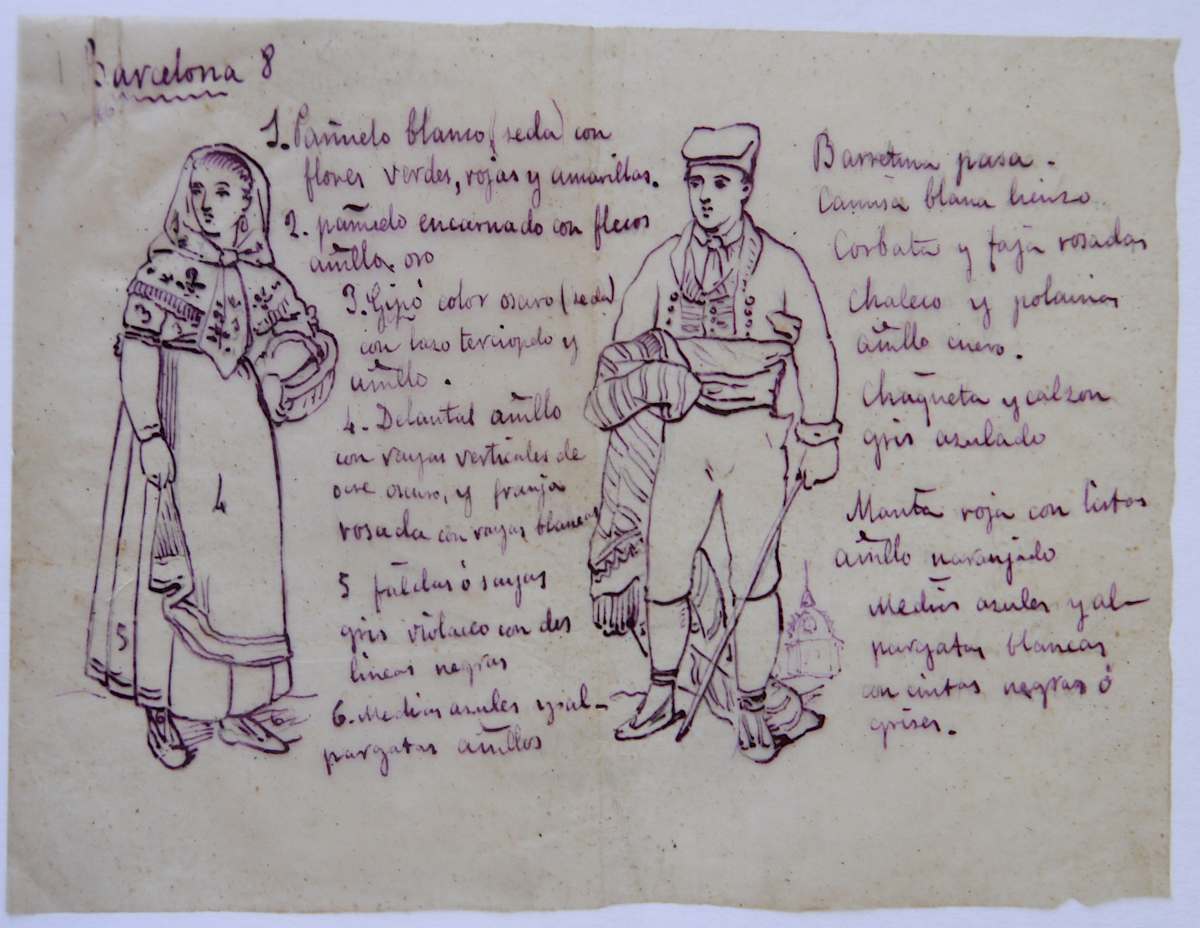 Barcelona 8
1. Pañuelo blanco (seda) con
flores verdes, rojas y amarillas.
2. pañuelo encarnado con flecos
am̃illo. oro
3. Gipó color oscuro (seda)
con lazo terciopelo y
am̃illo.
4. Delantal am̃illo
con rayas verticales de
ocre oscuro, y franja
rosada con rayas blancas
5 faldas ó sayas
gris violaceo con dos
lineas negras
6. Medias azules y al-
pargatas am̃illos
Barretina pasa.
Camisa blana lienzo
Corbata y faja rosadas
Chaleco y polainas
am̃illo cuero.
Chaqueta y calzon
gris azulado
Manta roja con listas
am̃illo naranjado
Medias azules y al-
pargatas blancas
con cintas negras ó
grises.
1
3
4
5
6